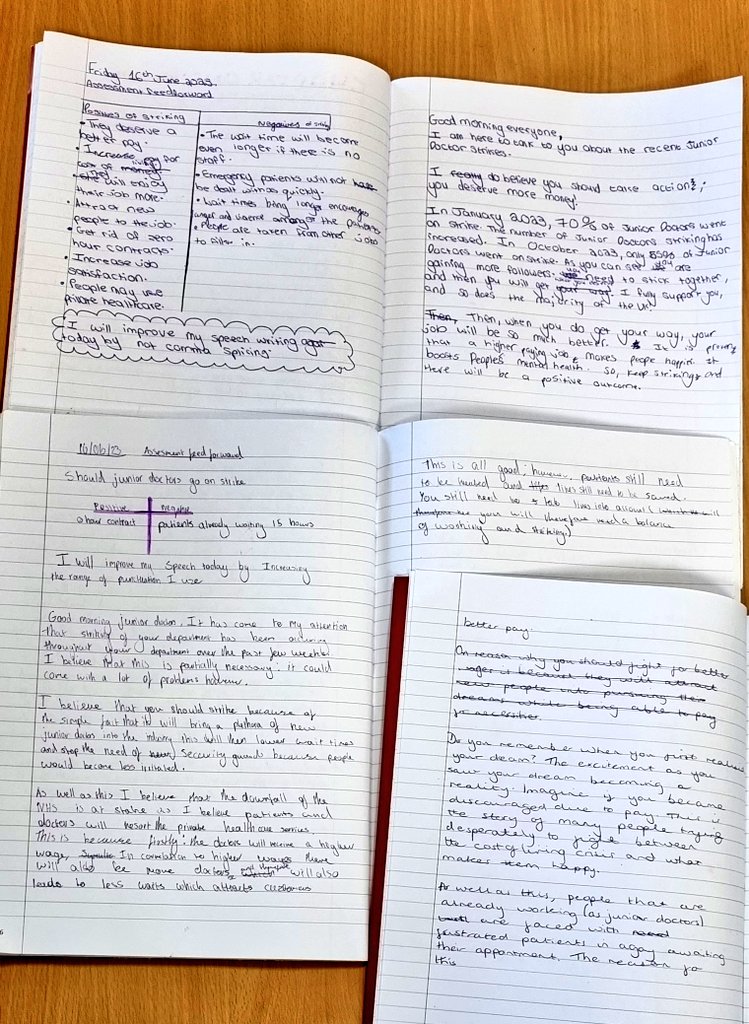 Friday 16th June 2023.
Assessment Feedforward
Positives of striking
• They deserve a
better pay.
• Increase pay for
cost of living
• will enjoy
their job more.
• Attract new
people to the job.
• Get rid of zero
hour contracts.
• Increase job
satisfaction.
• People may use
private healthcare.
Negatives of
• The wait time will become
even longer if there is no
staff.
• Emergency patients will not
be dealt with as quickly.
• Wait times being longer encourages
anger and violence amongst the patients
• People are taken from other jobs
to filter in.
I will improve my speech writing
today by not comma splicing.
Good morning everyone,
I am here to talk to you about the recent Junior
Doctor strikes.
I really do believe you should take action;
you deserve more money!
In January 2023, 70% of Junior Doctors went
on strike. The number of Junior Doctors striking has
increased. In October 2023, only of Junior
Doctors went on strike. As you can see you are
gaining more followers. need to stick together,
and then you will get your way. I fully support you,
and so does the majority of the UK.
Then, Then, when you do get your way, your
job will be so much better. It is proven
that a higher paying job makes people happier. It
boosts people's mental health. So, keep striking and
there will be a positive outcome.
16/06/23 Assesment feed forward
Should junior doctors go on strike
Positive negative
0 hour contract patients already waiting 15 hours
I will improve my speech today by Increasing
the range of punctuation I use
Good morning junior doctors, It has come to my attention
that striking of your department has been occuring
throughout your department over the past few weeks.
I believe that this is partially necessary: it could
come with a lot of problems however.
I believe that you should strike because of
the simple fact that it will bring a plethora of new
junior doctors into the industry this will then lower wait times
and stop the need of security guards because people
would become less irritated.
As well as this I believe that the downfall of the
NHS is at stake as I believe patients and
doctors will resort the private healthcare services.
This is because firstly: the doctors will receive a higher
wage, In correlation to higher wages there
will also be more doctors and will also
leads to less waits which attracts customers
This is all good; however, patients still need
to be healed and lives still need to be saved.
You still need to take lives into account
you will therefore need a balance
of working and striking.)
better pay.
On reason why you should fight for better
wages is because they will attract
new people into pursuing their
dreams while being able to pay
for necessities.
Do you remember when you first realised
your dream? The excitement as you
saw your dream becoming a
reality. Imagine if you became
discouraged due to pay. This is
the story of many people trying
desperately to fight between
the cost of living crisis and what
makes them happy.
As well as this, people that are
already working (as junior doctors)
are faced with
frustrated patients in agony awaiting
their appointment. The reason for
this